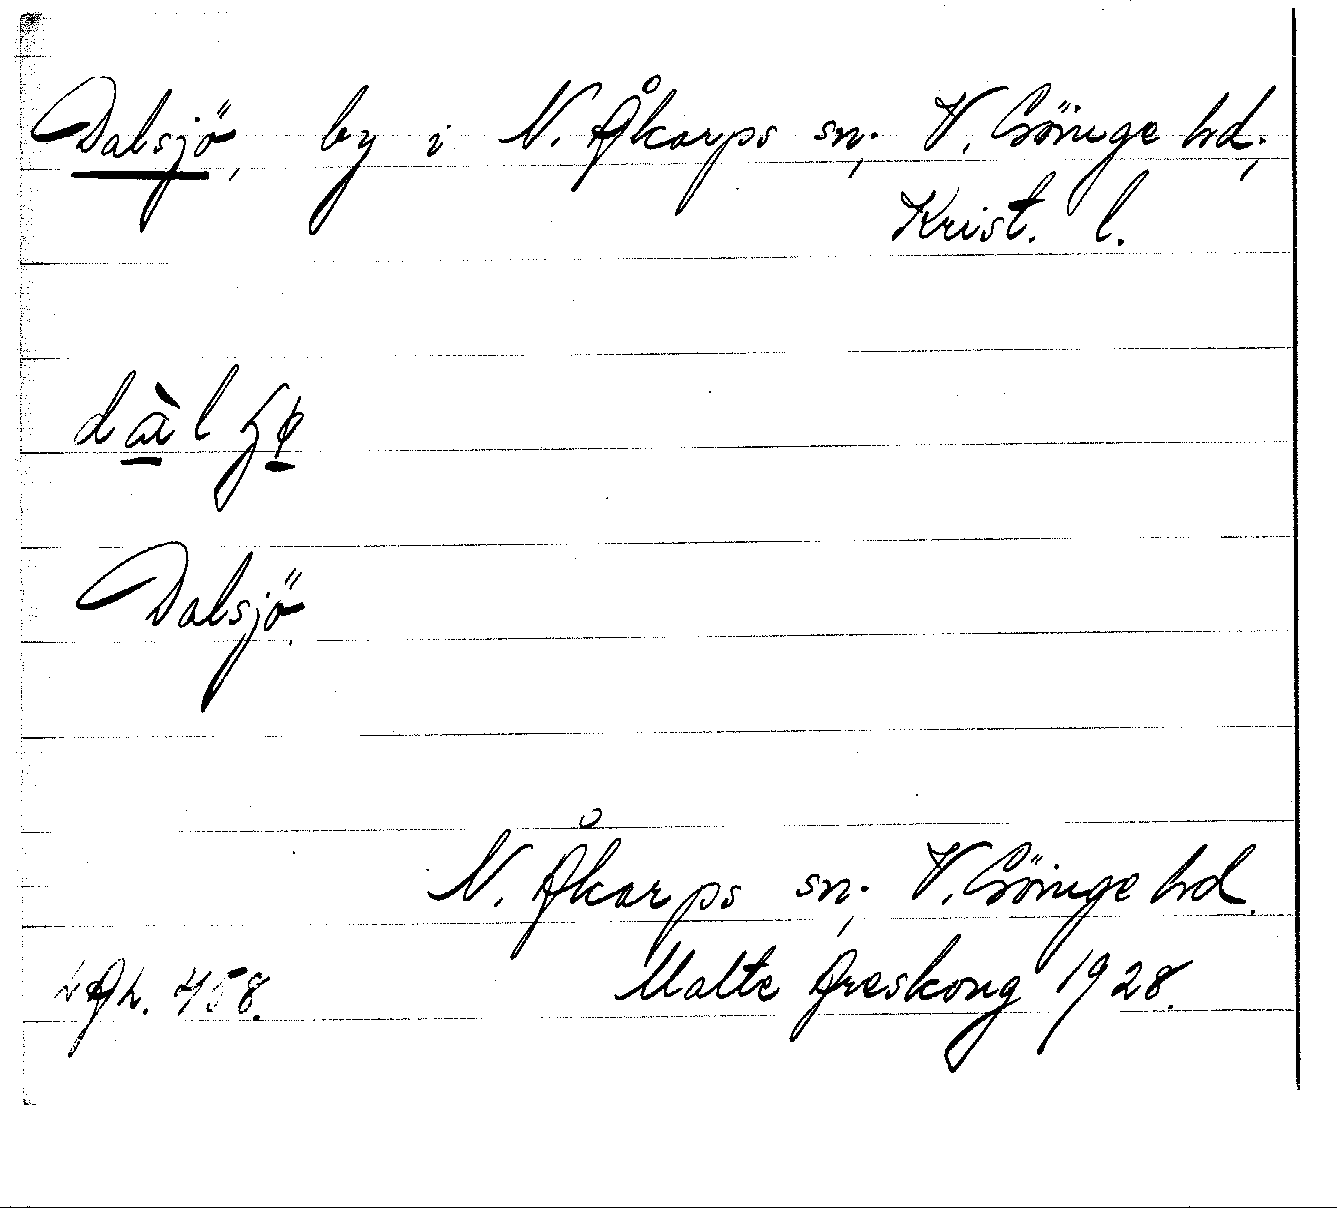 Dalsjö, by i N. Åkarps sn; V. Göinge hd;
Krist. l.
Dalsjö.
N. Åkarps sn; V. Göinge hd.
Malte Areskoug 1928.
458.